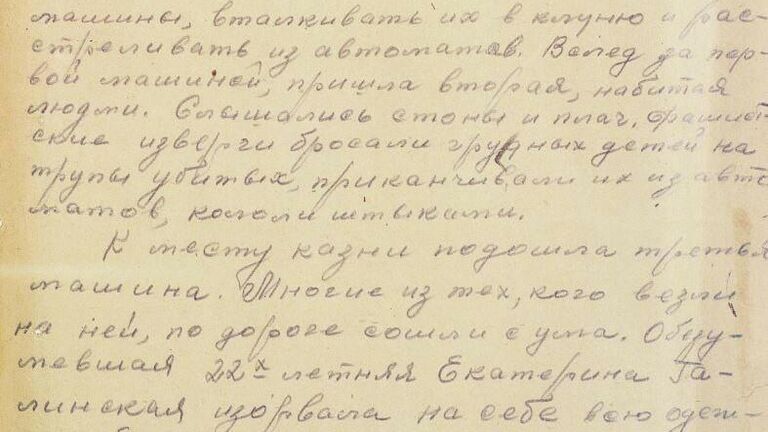 машины, вталкивать их в клуню и рас-
стреливать из автоматов. Вслед за пер-
вой машиной, пришла вторая, набитая
людми. Слышались стоны и плач, фашист-
ские изверги бросали грудных детей на
трупы убитых, приканчивали их из авто
матов, кололи штыками.
К месту казни подошла третья
машина. Многие из тех, кого везли
на ней, по дороге сошли с ума. Обезу-
мевшая 22х летняя Екатерина Га-
линская изорвала на себе всю одеж-